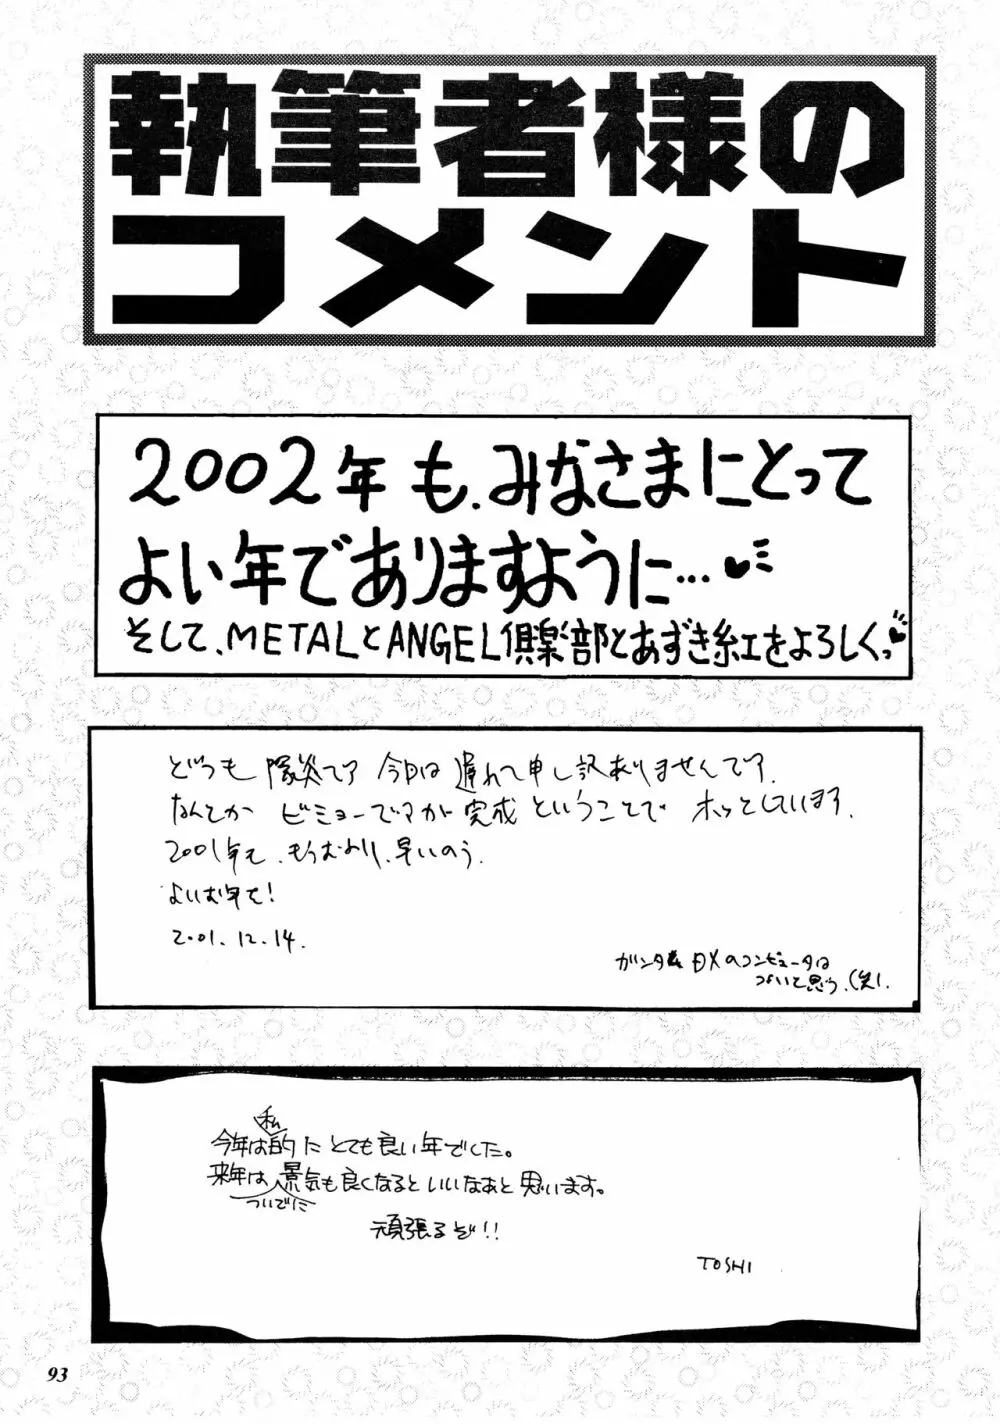 執筆者様の
コメント
2002年も、みなさまにとって
よい年でありますように…
そして、METALとANGEL倶楽部とあずき紅をよろしくっ
どうも 隊炎です 今回は 遅れて申し訳ありませんです.
なんとか ビミョーですが 完成 ということで ホッとしています.
2001年も、もうむより、早いのう.
よいお年を!
2001.12.14.
DXのコンピュータは
つよいと思う.(笑).
私
今年は的に とても良い年でした。
来年は景気も良くなるといいなぁと思います。
ついでに
頑張るぞ!!
TOSHI
93